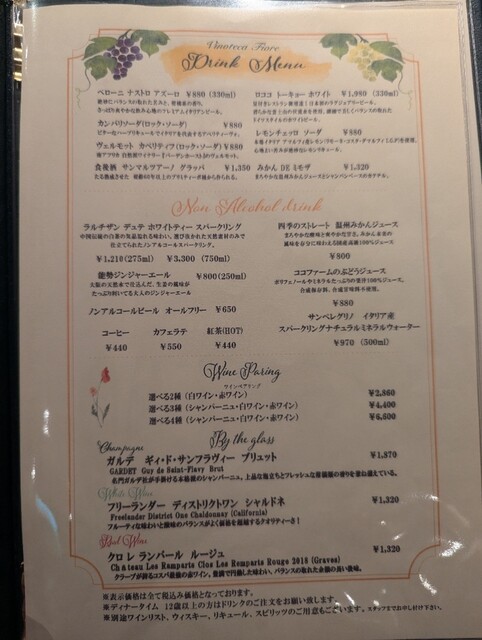 Vinoteca Fiore
Drink Menu
ベローニ ナストロ アズーロ ¥880 (330ml)
カンパリソーダ(ロック・ソーダ) ¥880
ヴェルモット カペリティフ(ロック・ソーダ) ¥880
食後酒 サンマルツアーノ グラッパ ¥1,350
ロココ トーキョー ホワイト ¥1,980 (330ml)
レモンチェッロ ソーダ ¥880
みかん DE ミモザ ¥1,320
Non Alcohol drink
ラルチザン デュテ ホワイトティー スパークリング
¥1,210(275ml) ¥3,300 (750ml)
能勢ジンジャーエール ¥800(250ml)
大阪の天然水で仕込んだ、生姜の風味が
たっぷり利いてる大人のジンジャーエール
ノンアルコールビール オールフリー ¥650
コーヒー カフェラテ 紅茶(HOT)
¥440 ¥550 ¥440
四季のストレート 温州みかんジュース
¥800
ココファームのぶどうジュース
¥880
サンペレグリノ イタリア産
スパークリングナチュラルミネラルウォーター
¥970 (500ml)
Wine Paring
ワインペアリング
選べる2種 (白ワイン・赤ワイン) ¥2,860
選べる3種 (シャンパーニュ・白ワイン・赤ワイン) ¥4,400
選べる4種 (シャンパーニュ・白ワイン・赤ワイン) ¥6,600
By the glass
Champagne
ガルデ ギィ・ド・サンフラヴィー ブリュット ¥1,870
GARDET Guy de Saint-Flavy Brut
名門ガルデ社が手掛ける本格派のシャンパーニュ。上品な泡立ちとフレッシュな柑橘類の香りを兼ね備えている。
White Wine
フリーランダー ディストリクトワン シャルドネ ¥1,320
Freelander District One Chadonnay (California)
フルーティな味わいと酸味のバランスがよく価格を超越するクオリティーさ！
Red Wine
クロ レ ランパール ルージュ ¥1,320
Château Les Remparts Clos Les Remparts Rouge 2018 (Graves)
グラーブが誇るコスパ最強の赤ワイン。豊潤で円熟した味わい、バランスの取れた余韻の長い後味。
※表示価格は全て税込み価格となっております。
※ディナータイム 12歳以上の方はドリンクのご注文をお願い致します。
※別途ワインリスト、ウィスキー、リキュール、スピリッツのご用意もございます。スタッフまでお申し付け下さい。